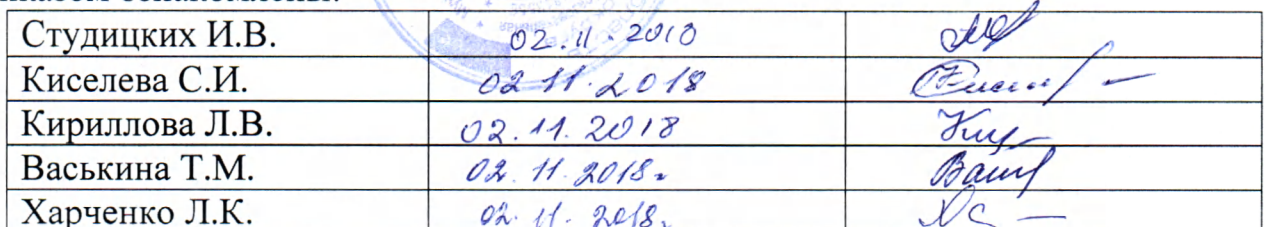 ознакомлены.
Студицких И.В. 02.11.2018
Киселева С.И. 02.11.2018
Кириллова Л.В. 02.11.2018
Васькина Т.М. 02.11.2018г
Харченко Л.К. 02.11.2018г